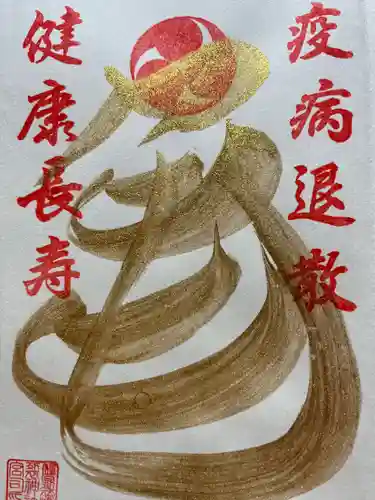 疫病退散
健康長寿